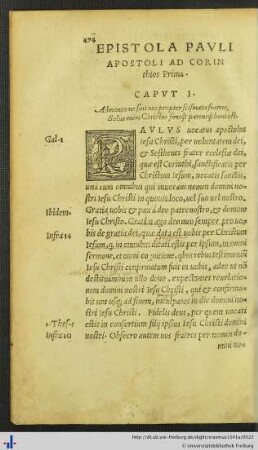 474
EPISTOLA PAVLI
APOSTOLI AD CORIN
thios Prima.
CAPVT I.
PAVLVS uocatus apostolus
Gal. 1
Iesu Christi, per uoluntatem dei,
& Sosthenes frater ecclesiæ dei,
quæ est Corinthi, sanctificatis per
Christum Iesum, uocatis sanctis,
una cum omnibus qui inuocant nomen domini
nostri Iesu Christi in quouis loco, uel suo uel nostro,
Ibidem.
Gratia uobis & pax à deo patre nostro, & domino
Iesu Christo. Gratias ago deo meo semper pro uo
Infra 14
bis de gratia dei, quæ data est uobis per Christum
Iesum, q, in omnibus ditati estis per ipsum, in omni
sermone, et omni cognitione, quibus rebus testimoniũ
Iesu Christi confirmatum fuit in uobis, adeo ut nõ
destituamini in ullo dono, expectantes reuelatio
nem domini nostri Iesu Christi, qui & confirma
bit uos usq; ad finem, inculpatos in die domini no
stri Iesu Christi. Fidelis deus, per quem uocati
1. Thes. 5
estis in consortium filij ipsius Iesu Christi domini
Infra 10
nostri. Obsecro autem uos fratres per nomen do-
mini no
http://dl.ub.uni-freiburg.de/diglit/erasmus1541a/0522
© Universitätsbibliothek Freiburg